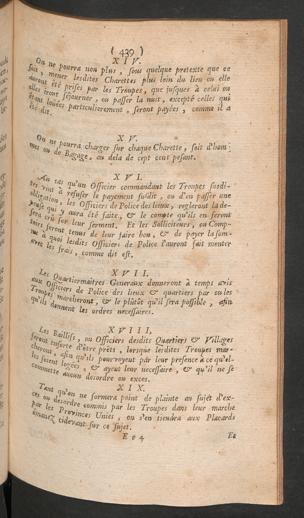 ( 439 )
XIV.
On ne pourra non plus, sous quelque pretexte que ce
soit, mener lesdites Charettes plus loin du lieu ou elle
auront été prises par les Troupes, que jusques à celui ou
elles iront séjourner, ou passer la nuit, excepté celles qui
étant louées particulierement, seront payées, comme il a
été dit.
XV.
On ne pourra charger sur chaque Charette, soit d'hom-
mes ou de Bagage, au dela de sept cent pesant.
XVI.
En cas qu'un Officier commandant les Troupes susdi-
tes vint à refuser le payement susdit, ou d'en passer une
obligation, les Officiers de Police des lieux, regleront la de-
pense qui y aura été faite, & le compte qu'ils en feront
sera crû sur leur serment. Et les Solliciteurs, ou Comp-
seront tenus de leur faire bon, & de payer la som-
me à quoi lesdits Officiers de Police l'auront fait monter
avec les frais, comme dit est.
XVII.
Les Quartiermaitres Generaux donneront à tems avis
aux Officiers de Police des lieux & quartiers par ou les
Troupes marcheront, & le plûtôt qu'il sera possible, afin
qu'ils donnent les ordres necessaires.
XVIII,
Les Baillifs, ou Officiers desdits Quartiers & Villages
seront ensorte d'être prêts, lorsque lesdites Troupes mar-
cheront, afin qu'ils pourvoyent par leur presence à ce qu'el-
les soient logées, & ayent leur necessaire, & qu'il ne se
commette aucun desordre ou excez.
XIX.
Tant qu'en ne formera point de plainte au sujet d'ex-
ces ou desordre commis par les Troupes dans leur marche
par les Provinces Unies, ou s'en tiendra aux Placards
émanez cidevant sur ce sujet.
E e 4